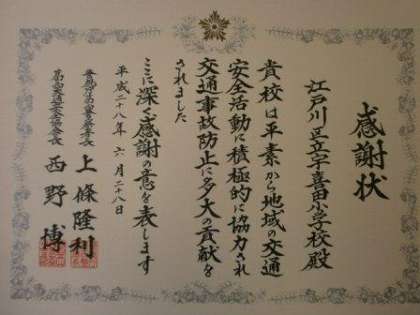 感謝状
江戸川区立宇喜田小学校殿
貴校は平素から地域の交通
安全活動に積極的に協力され
交通事故防止に多大の貢献を
されました
ここに深く感謝の意を表します
平成二十八年六月二十八日
警視庁葛西警察署長 上條隆利
葛西交通安全協会会長 西野博